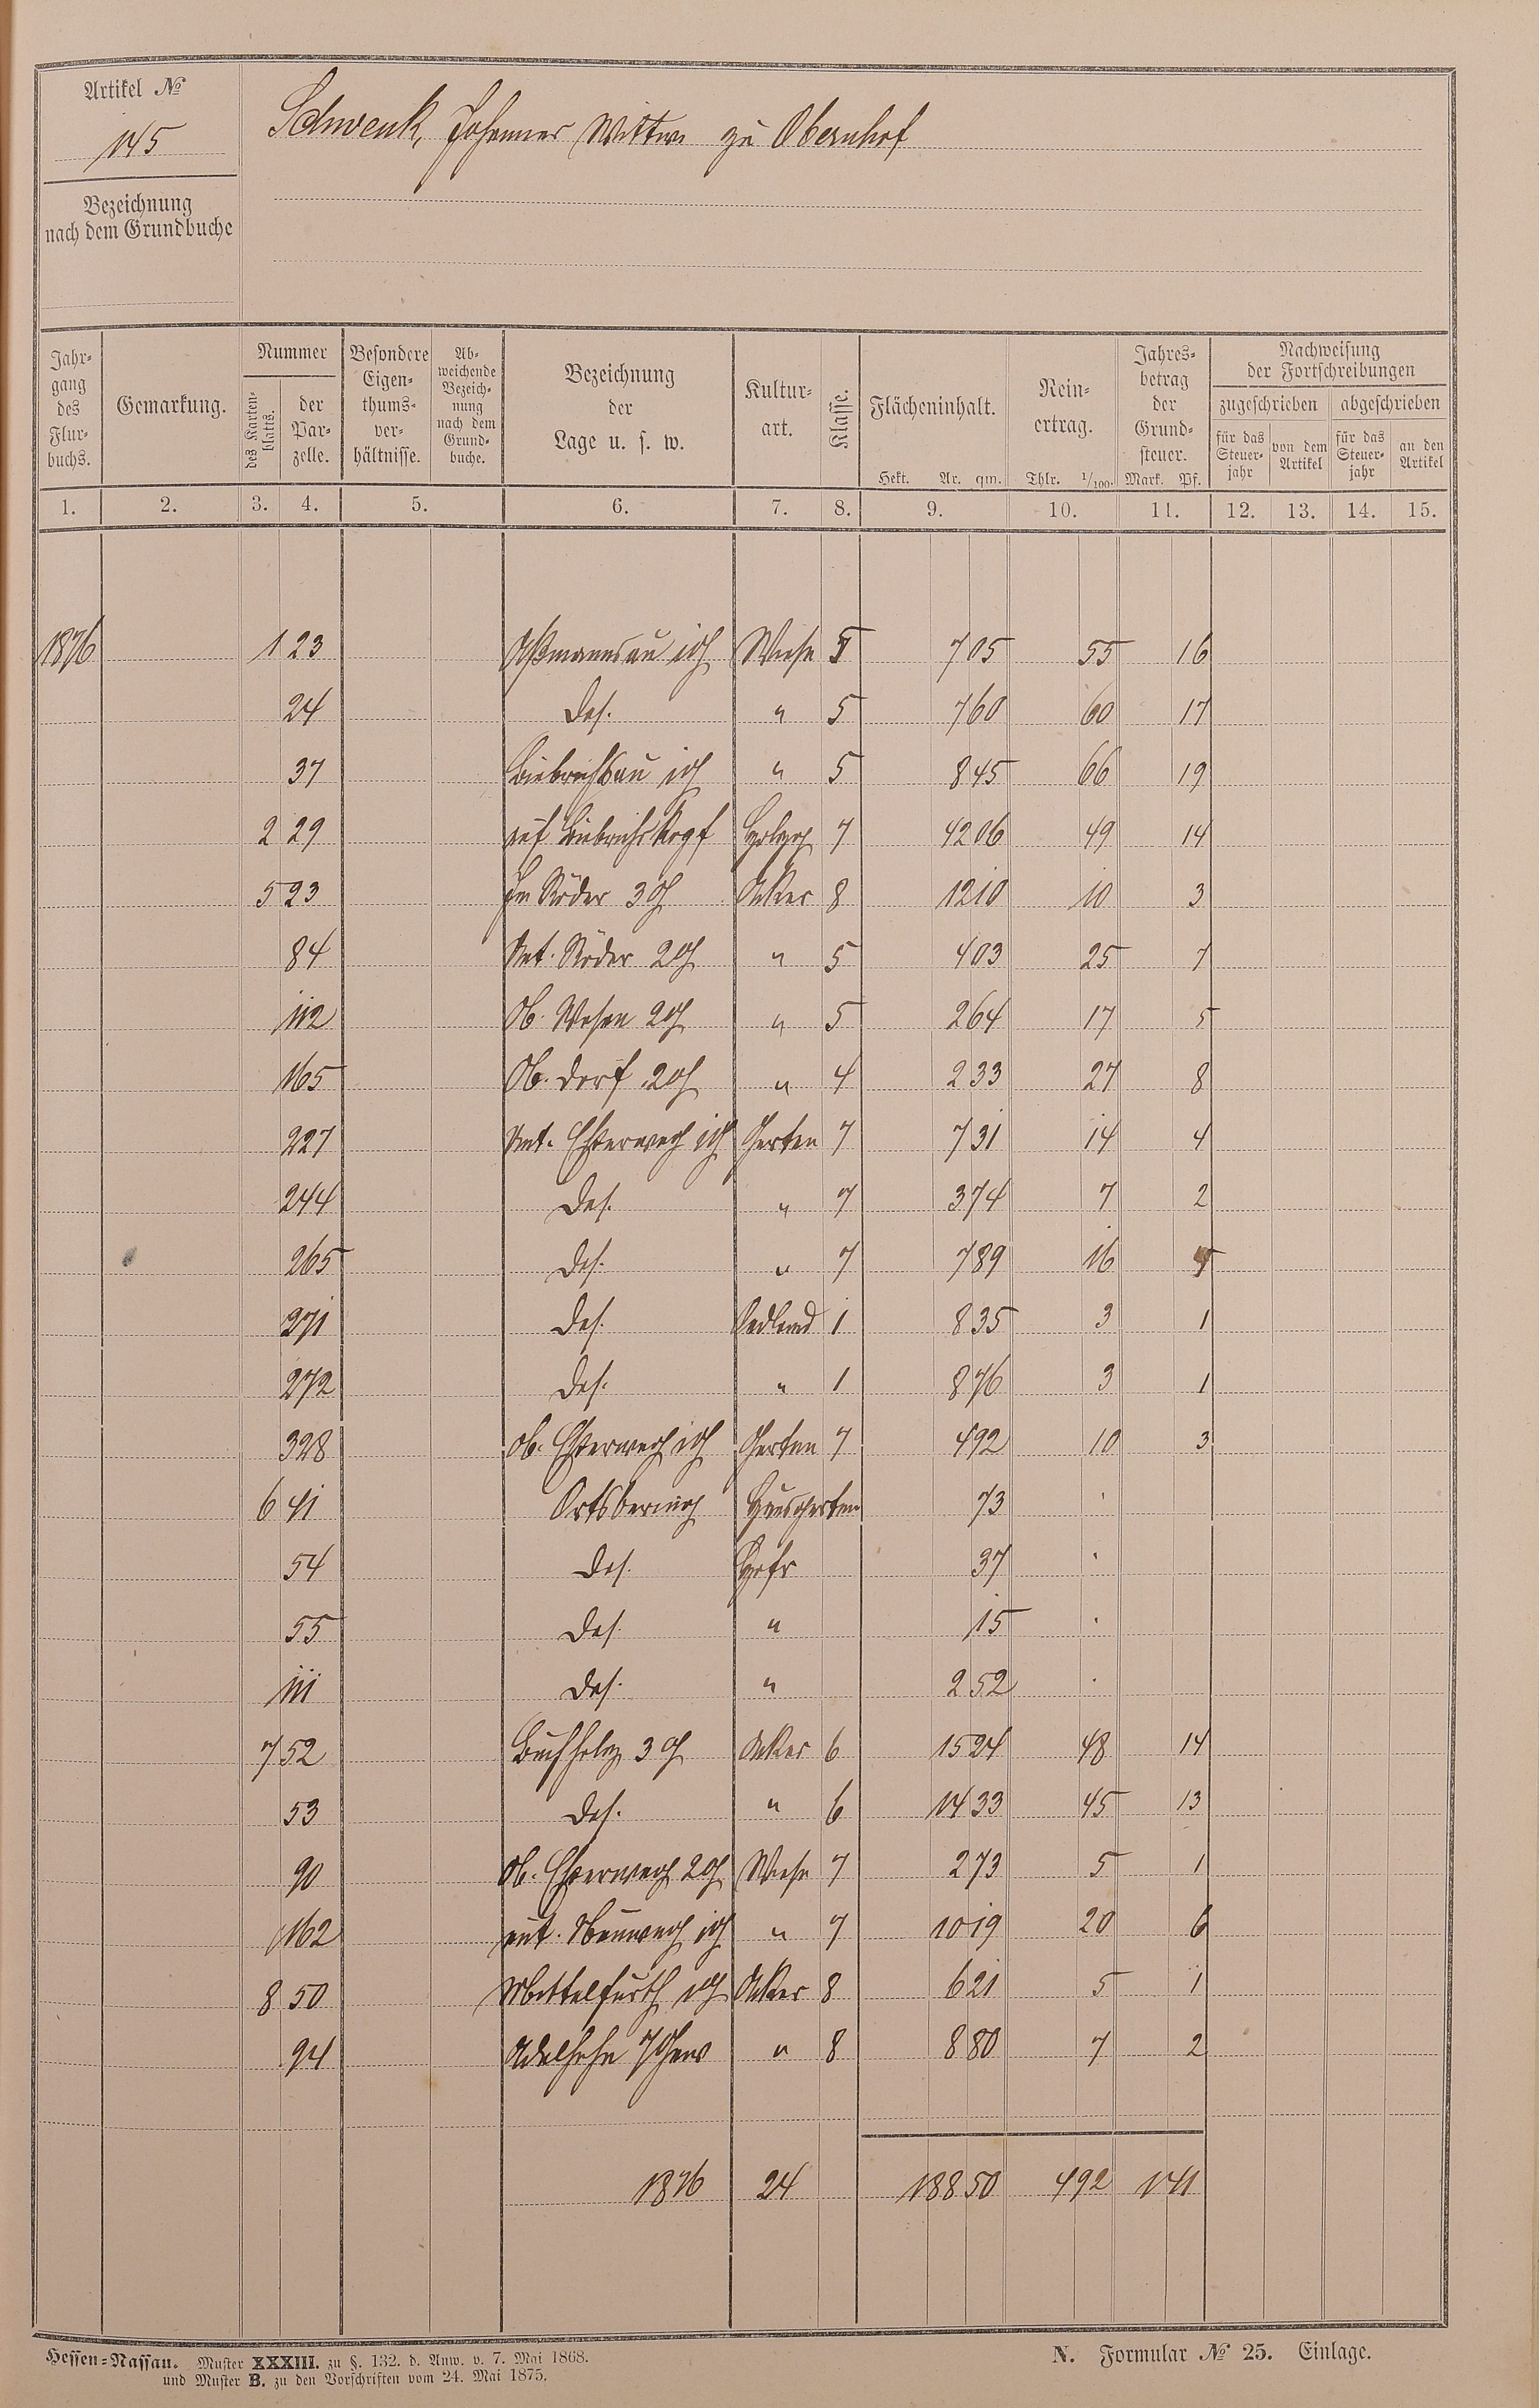 Artikel №
145
Schwenk, Johannes Wittwe zu Obernhof
Bezeichnung
nach dem Grundbuche
Jahr-
gang
des
Flur-
buchs.
Gemarkung.
Nummer
des Karten-
blatts.
der
Par-
zelle.
Besondere
Eigen-
thums-
ver-
hältnisse.
Ab-
weichende
Bezeich-
nung
nach dem
Grund-
buche.
Bezeichnung
der
Lage u. s. w.
Kultur-
art.
Klasse.
Flächeninhalt.
Hekt. Ar. qm.
Rein-
ertrag.
Thlr. 1/100.
Jahres-
betrag
der
Grund-
steuer.
Mark. Pf.
Nachweisung
der Fortschreibungen
zugeschrieben abgeschrieben
für das
Steuer-
jahr
von dem
Artikel
für das
Steuer-
jahr
an den
Artikel
1. 2. 3. 4. 5. 6. 7. 8. 9. 10. 11. 12. 13. 14. 15.
1876 1 23 Aßmannsau Wiese 5 7 05 55 16
24 das. " 5 7 60 60 17
37 " 5 8 45 66 19
2 29 auf 7 42 06 49 14
5 23 Im Röder 3 Acker 8 12 10 10 3
84 Unt. Röder 2 " 5 4 03 25 7
112 Ob. Wesen 2 " 5 2 64 17 5
165 Ob. Dorf 2 " 4 2 33 27 8
227 Unt. Garten 7 7 31 14 4
244 das. " 7 3 74 7 2
265 das. " 7 7 89 16 5
271 das. Oedland 1 8 35 3 1
272 das. " 1 8 76 3 1
328 Ob. Garten 7 4 92 10 3
6 41 Ortsbering Hausgarten 73 .
54 das. Hofr 37 .
55 das. " 15 .
111 das. " 2 52 .
7 52 Buchholz 3 Acker 6 15 24 48 14
53 das. " 6 14 33 45 13
90 Ob. 2 Wiese 7 2 73 5 1
162 unt. " 7 10 19 20 6
8 50 Mittelfurth Acker 8 6 21 5 1
94 " 8 8 80 7 2
1876 24 1 88 50 4 92 1 41
Hessen-Nassau. Muster XXXIII. zu §. 132. d. Anw. v. 7. Mai 1868.
und Muster B. zu den Vorschriften vom 24. Mai 1875.
N. Formular № 25. Einlage.